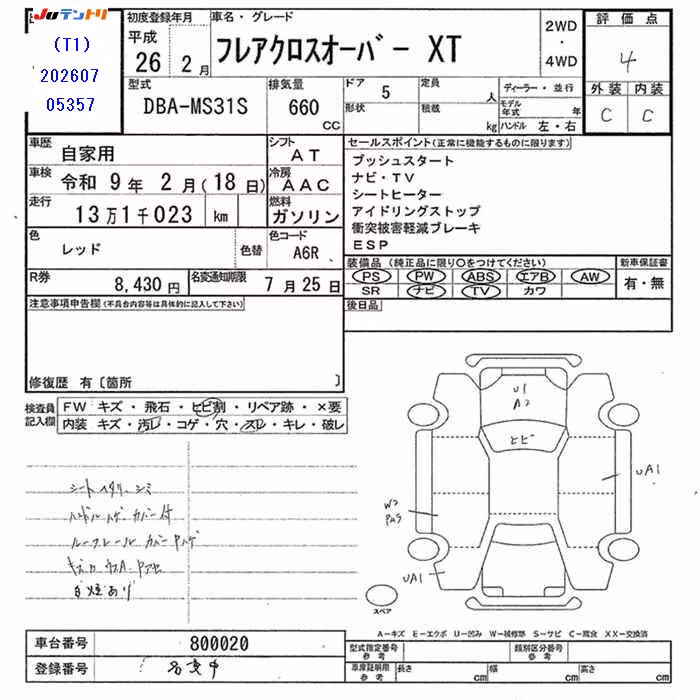 Juテントリ
(T1)
202607
05357
初度登録年月
平成
26 2月
車名・グレード
フレアクロスオーバー XT
2WD
・
4WD
評価点
4
外装 内装
C C
型式
DBA-MS31S
排気量
660
CC
ドア
5
形状
定員
人
積載
kg
ディーラー・並行
モデル年式 年
ハンドル 左・右
車歴
自家用
シフト
AT
車検
令和 9年 2月(18日)
冷房
AAC
走行
13万1千023 km
燃料
ガソリン
色
レッド
色替
色コード
A6R
R券
8,430円
名変通知期限
7月25日
セールスポイント(正常に機能するものに限ります)
プッシュスタート
ナビ・TV
シートヒーター
アイドリングストップ
衝突被害軽減ブレーキ
ESP
装備品 (純正品に限り○をつけてください)
PS PW ABS エアB AW
SR ナビ TV カワ
新車保証書
有・無
後日品
注意事項申告欄(不具合内容等は具体的に記入して下さい)
修復歴 有〔箇所 〕
検査員記入欄
FW キズ・飛石・ヒビ割・リペア跡・×要
内装 キズ・汚レ・コゲ・穴・スレ・キレ・破レ
シートヘタリ、シミ
ハンドルハゲ カバー付
ルーフレール カバー ハゲ
キズ凹
あり
U1
A2
ヒビ
UA1
W2
UA1
スペア
A-キズ E-エクボ U-凹み W-補修跡 S-サビ C-腐食 XX-交換済
車台番号
800020
登録番号
名変中
型式指定番号
参考
類別区分番号
参考
車庫証明用
参考
長さ cm
幅 cm
高さ cm